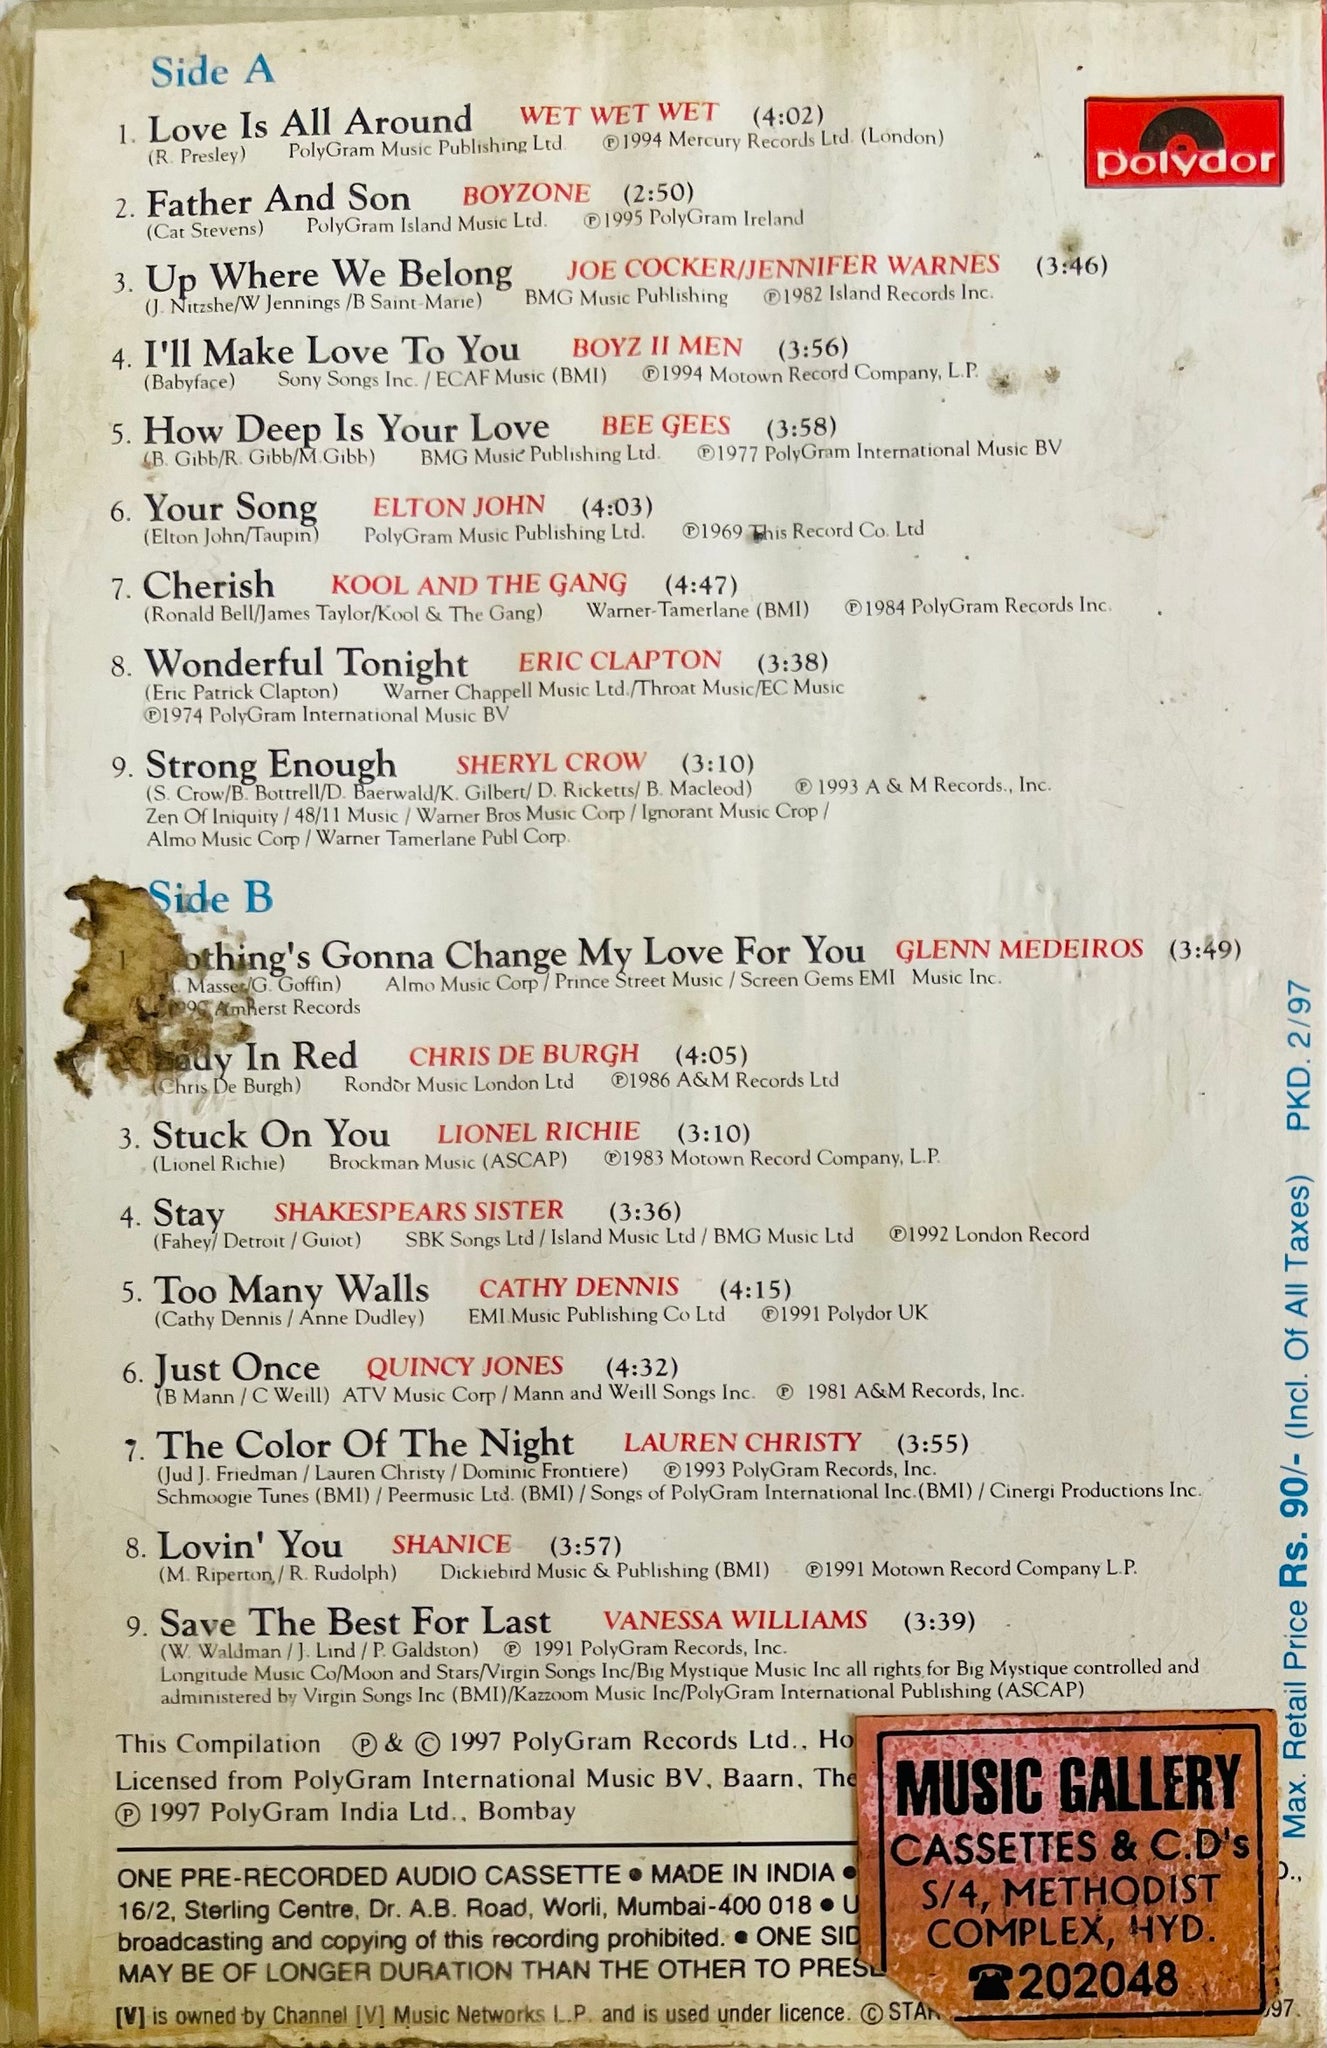 Side A
polydor
1. Love Is All Around WET WET WET (4:02)
(R. Presley) PolyGram Music Publishing Ltd. ℗1994 Mercury Records Ltd. (London)
2. Father And Son BOYZONE (2:50)
(Cat Stevens) PolyGram Island Music Ltd. ℗1995 PolyGram Ireland
3. Up Where We Belong JOE COCKER/JENNIFER WARNES (3:46)
(J. Nitzshe/W Jennings /B Saint-Marie) BMG Music Publishing ℗1982 Island Records Inc.
4. I'll Make Love To You BOYZ II MEN (3:56)
(Babyface) Sony Songs Inc. / ECAF Music (BMI) ℗1994 Motown Record Company, L.P.
5. How Deep Is Your Love BEE GEES (3:58)
(B. Gibb/R. Gibb/M.Gibb) BMG Music Publishing Ltd. ℗1977 PolyGram International Music BV
6. Your Song ELTON JOHN (4:03)
(Elton John/Taupin) PolyGram Music Publishing Ltd. ℗1969 This Record Co. Ltd
7. Cherish KOOL AND THE GANG (4:47)
(Ronald Bell/James Taylor/Kool & The Gang) Warner-Tamerlane (BMI) ℗1984 PolyGram Records Inc.
8. Wonderful Tonight ERIC CLAPTON (3:38)
(Eric Patrick Clapton) Warner Chappell Music Ltd./Throat Music/EC Music
℗1974 PolyGram International Music BV
9. Strong Enough SHERYL CROW (3:10)
(S. Crow/B. Bottrell/D. Baerwald/K. Gilbert/ D. Ricketts/ B. Macleod) ℗ 1993 A & M Records., Inc.
Zen Of Iniquity / 48/11 Music / Warner Bros Music Corp / Ignorant Music Crop /
Almo Music Corp / Warner Tamerlane Publ Corp.
Side B
1. Nothing's Gonna Change My Love For You GLENN MEDEIROS (3:49)
Masser/G. Goffin) Almo Music Corp / Prince Street Music / Screen Gems EMI Music Inc.
Amherst Records
Lady In Red CHRIS DE BURGH (4:05)
(Chris De Burgh) Rondor Music London Ltd ℗1986 A&M Records Ltd
3. Stuck On You LIONEL RICHIE (3:10)
(Lionel Richie) Brockman Music (ASCAP) ℗1983 Motown Record Company, L.P.
4. Stay SHAKESPEARS SISTER (3:36)
(Fahey/ Detroit / Guiot) SBK Songs Ltd / Island Music Ltd / BMG Music Ltd ℗1992 London Record
5. Too Many Walls CATHY DENNIS (4:15)
(Cathy Dennis / Anne Dudley) EMI Music Publishing Co Ltd ℗1991 Polydor UK
6. Just Once QUINCY JONES (4:32)
(B Mann / C Weill) ATV Music Corp / Mann and Weill Songs Inc. ℗ 1981 A&M Records, Inc.
7. The Color Of The Night LAUREN CHRISTY (3:55)
(Jud J. Friedman / Lauren Christy / Dominic Frontiere) ℗1993 PolyGram Records, Inc.
Schmoogie Tunes (BMI) / Peermusic Ltd. (BMI) / Songs of PolyGram International Inc.(BMI) / Cinergi Productions Inc.
8. Lovin' You SHANICE (3:57)
(M. Riperton / R. Rudolph) Dickiebird Music & Publishing (BMI) ℗1991 Motown Record Company L.P.
9. Save The Best For Last VANESSA WILLIAMS (3:39)
(W. Waldman / J. Lind / P. Galdston) ℗ 1991 PolyGram Records, Inc.
Longitude Music Co/Moon and Stars/Virgin Songs Inc/Big Mystique Music Inc all rights for Big Mystique controlled and
administered by Virgin Songs Inc (BMI)/Kazzoom Music Inc/PolyGram International Publishing (ASCAP)
This Compilation ℗ & © 1997 PolyGram Records Ltd., Ho
Licensed from PolyGram International Music BV, Baarn, The
℗ 1997 PolyGram India Ltd., Bombay
ONE PRE-RECORDED AUDIO CASSETTE ● MADE IN INDIA ●
16/2, Sterling Centre, Dr. A.B. Road, Worli, Mumbai-400 018 ● U
broadcasting and copying of this recording prohibited. ● ONE SID
MAY BE OF LONGER DURATION THAN THE OTHER TO PRES
[V] is owned by Channel [V] Music Networks L.P. and is used under licence. © STAR
MUSIC GALLERY
CASSETTES & C.D's
S/4, METHODIST
COMPLEX, HYD.
☎202048
Max. Retail Price Rs. 90/- (Incl. Of All Taxes) PKD. 2/97